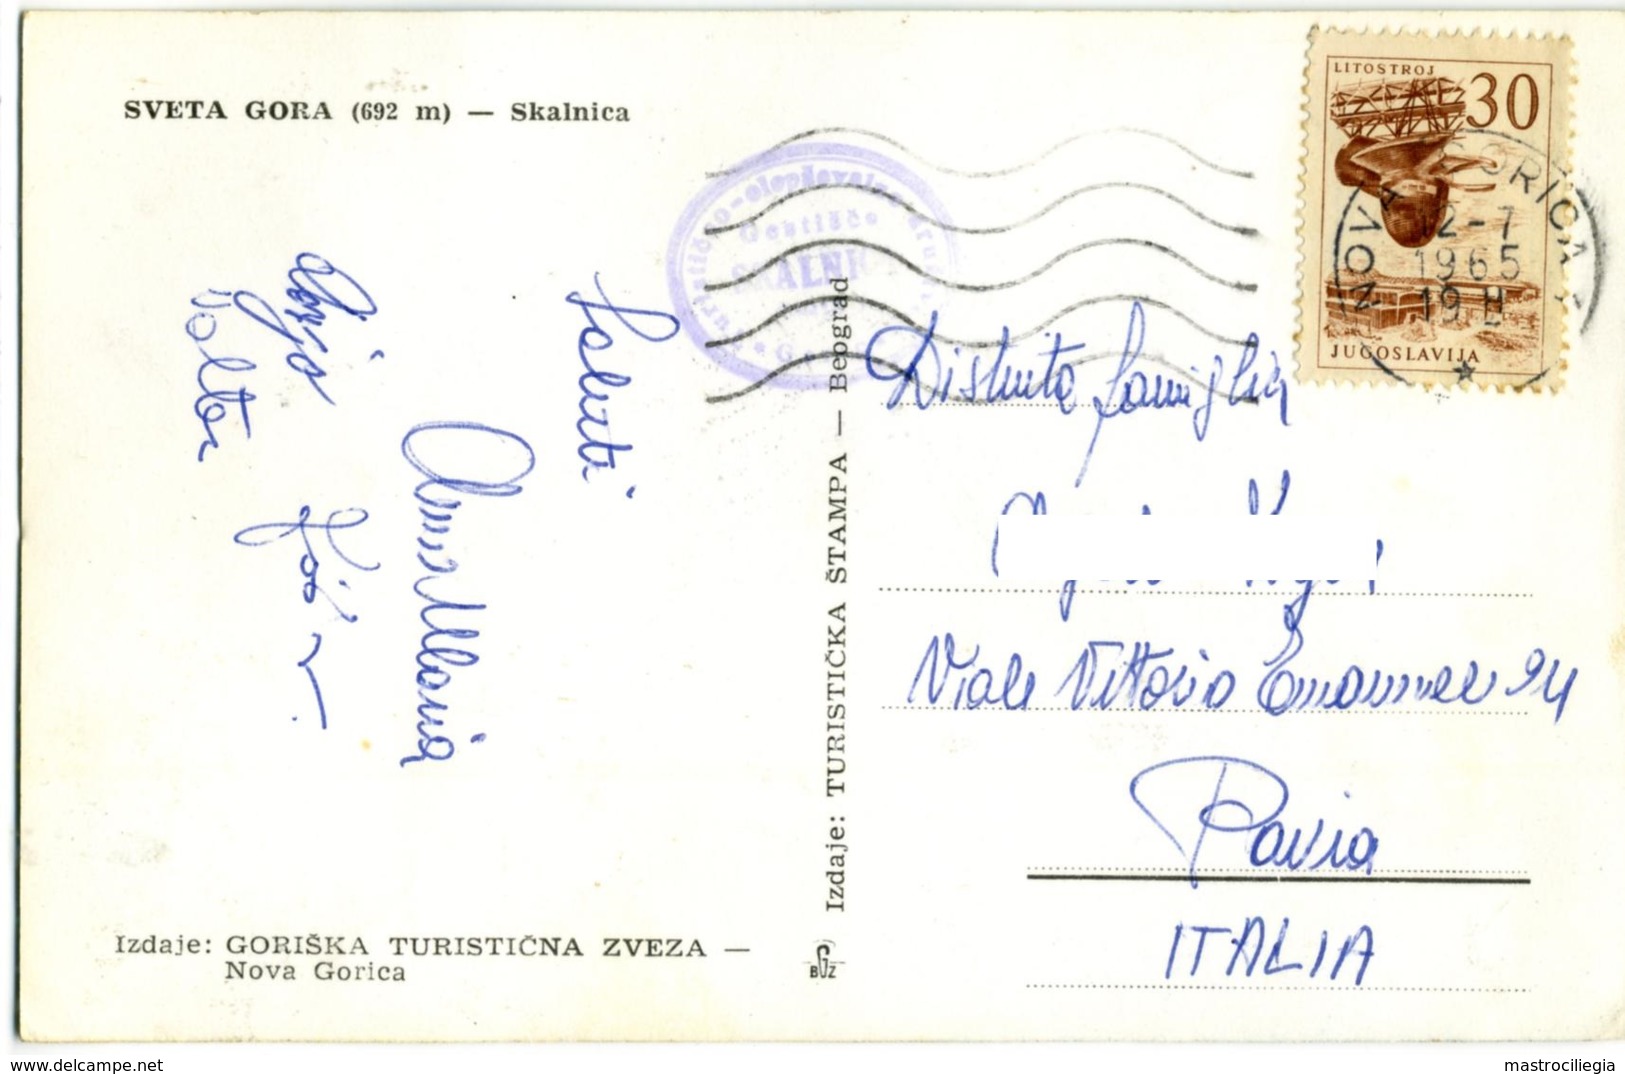 SVETA GORA (692 m) — Skalnica
LITOSTROJ 30
NOVA GORICA
12-7
1965
19 H
JUGOSLAVIJA
Gostišče
SKALNI
Saluti
Annamaria
Walter
Distinta famiglia
Viale Vittorio Emanuele 94
Pavia
ITALIA
Izdaje: TURISTIČKA ŠTAMPA — Beograd
Izdaje: GORIŠKA TURISTIČNA ZVEZA —
Nova Gorica
BGZ
delcampe.net
mastrociliegia